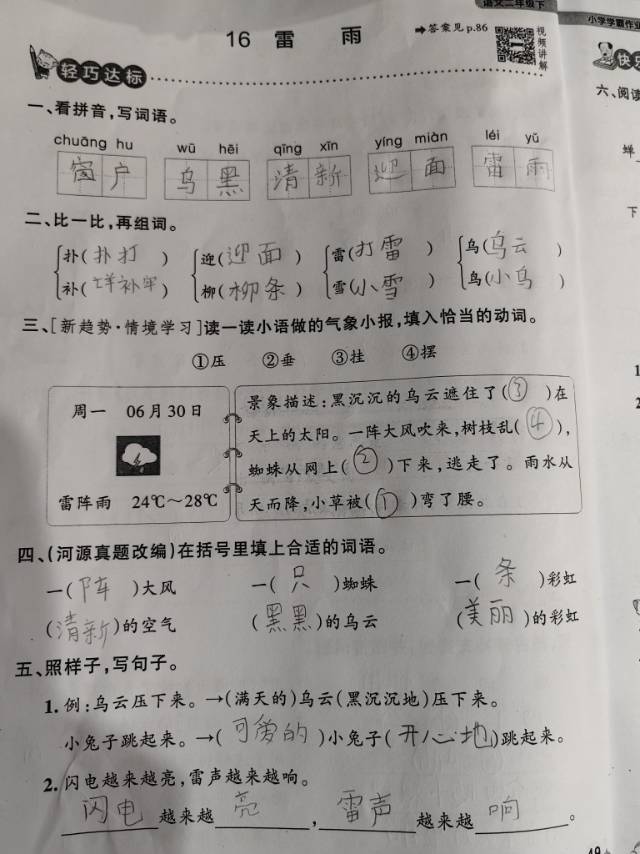 语文二年级下
小学学霸作业
16 雷 雨
➡答案见p.86
视频讲解
轻巧达标
快乐
一、看拼音,写词语。
chuāng hu wū hēi qīng xīn yíng miàn léi yǔ
窗户 乌黑 清新 迎面 雷雨
二、比一比,再组词。
扑(扑打) 迎(迎面) 雷(打雷) 乌(乌云)
补( 补牢) 柳(柳条) 雪(小雪) 鸟(小鸟)
三、[新趋势·情境学习]读一读小语做的气象小报,填入恰当的动词。
①压 ②垂 ③挂 ④摆
周一 06月30日
雷阵雨 24℃~28℃
景象描述:黑沉沉的乌云遮住了(③)在
天上的太阳。一阵大风吹来,树枝乱(④),
蜘蛛从网上(②)下来,逃走了。雨水从
天而降,小草被(①)弯了腰。
四、(河源真题改编)在括号里填上合适的词语。
一(阵)大风 一(只)蜘蛛 一(条)彩虹
(清新)的空气 (黑黑)的乌云 (美丽)的彩虹
五、照样子,写句子。
1. 例:乌云压下来。→(满天的)乌云(黑沉沉地)压下来。
小兔子跳起来。→(可爱的)小兔子(开心地)跳起来。
2. 闪电越来越亮,雷声越来越响。
闪电越来越亮,雷声越来越响。
49
六、阅读
蝉
下
1